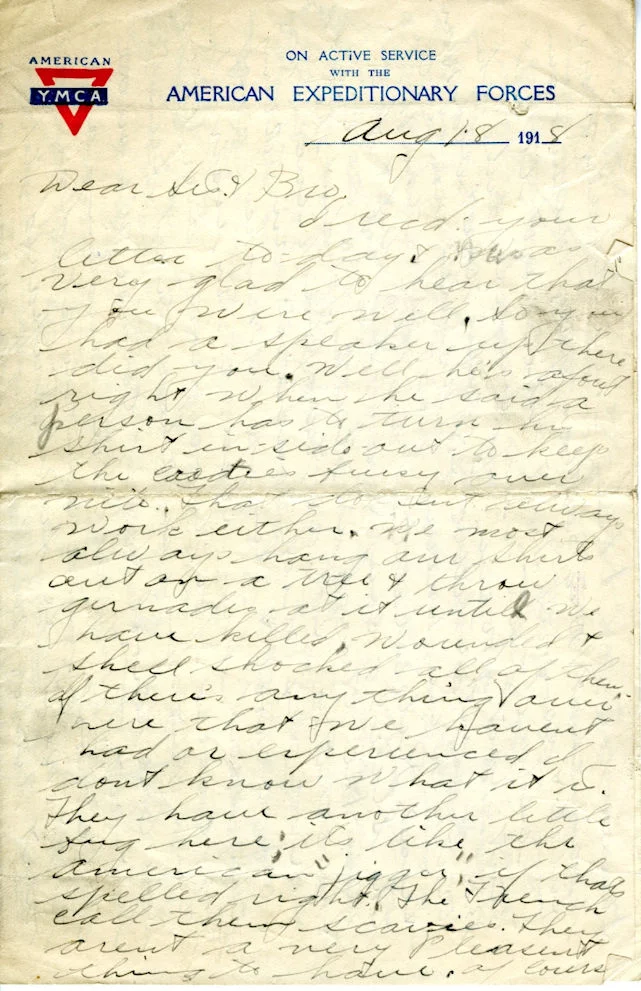 AMERICAN
Y.M.C.A.
ON ACTIVE SERVICE
WITH THE
AMERICAN EXPEDITIONARY FORCES
Aug 18 1918
Dear Sis & Bro,
I recd. your
letter to-day & was
very glad to hear that
you were well. So you
had a speaker up there
did you. Well he's about
right when he said a
person has to turn his
shirt in-side-out to keep
the cooties busy over
nite. That dosent always
work either. We most
always hang our shirts
out on a tree & throw
gernades at it until we
have killed, wounded &
shell shocked all of them.
If there's any thing over
here that we havent
had or experienced I
dont know what it is.
They have another little
bug here, its like the
american "jigger" if thats
spelled right. The French
call them scavies. They
arent a very pleasent
thing to have. of course